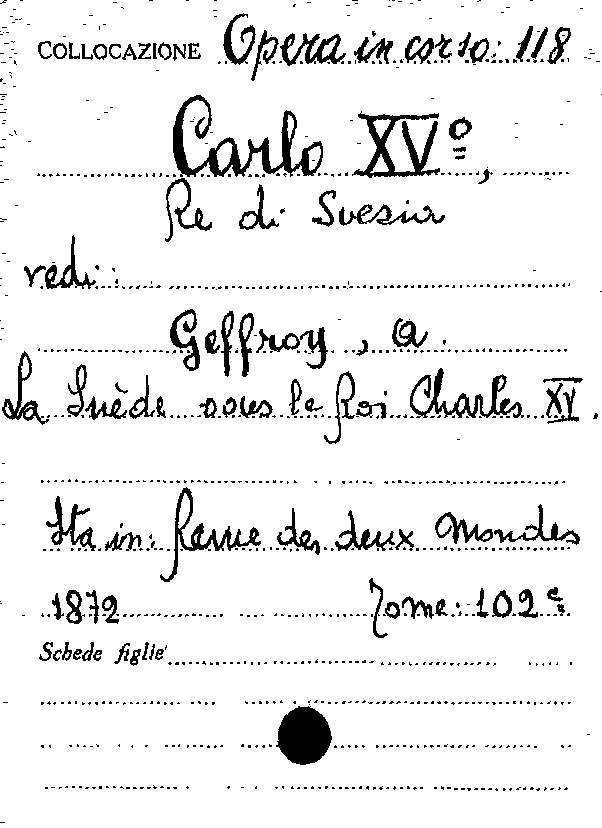 COLLOCAZIONE Opera in corso: 118
Carlo XVº,
Re di Svezia
vedi:
Geffroy, A.
La Suède sous le Roi Charles XV.
Sta in: Revue des deux Mondes
1872 Tome: 102e
Schede figlie